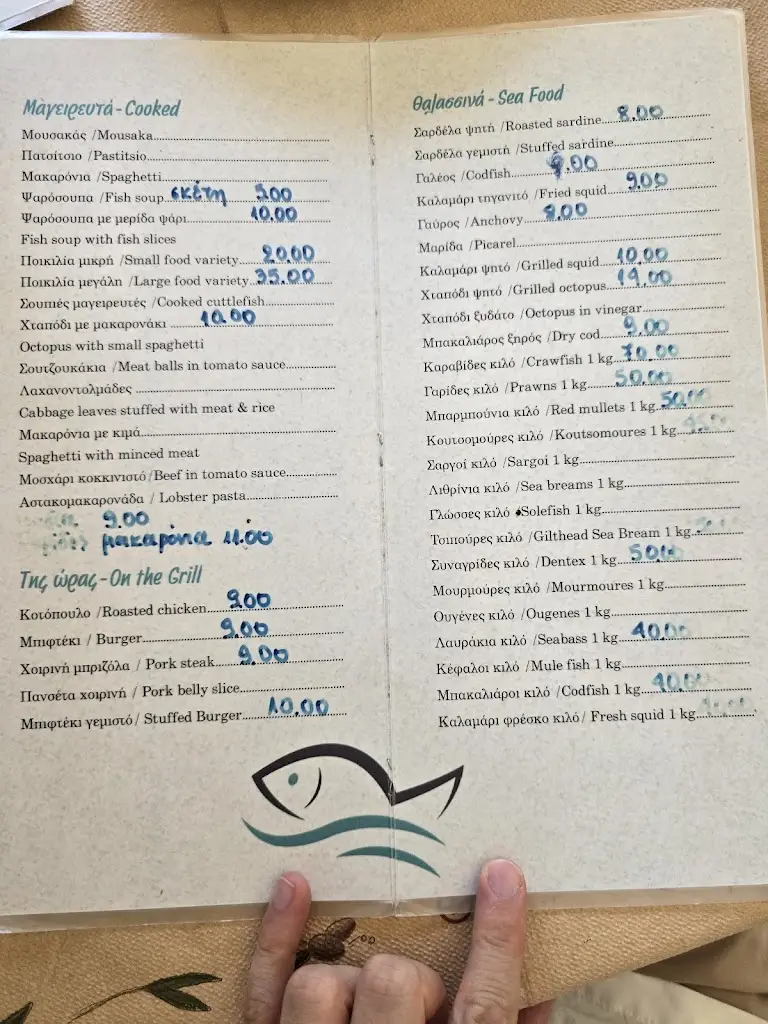 Μαγειρευτά - Cooked
Μουσακάς /Mousaka
Πατσίτσιο /Pastitsio
Μακαρόνια /Spaghetti
Ψαρόσουπα /Fish soup σκέτη 5.00
Ψαρόσουπα με μερίδα ψάρι 10.00
Fish soup with fish slices
Ποικιλία μικρή /Small food variety 20.00
Ποικιλία μεγάλη /Large food variety 35.00
Σουπιές μαγειρευτές /Cooked cuttlefish
Χταπόδι με μακαρονάκι 10.00
Octopus with small spaghetti
Σουτζουκάκια /Meat balls in tomato sauce
Λαχανοντολμάδες
Cabbage leaves stuffed with meat & rice
Μακαρόνια με κιμά
Spaghetti with minced meat
Μοσχάρι κοκκινιστό/Beef in tomato sauce
Αστακομακαρονάδα / Lobster pasta
9.00
μακαρόνια 11.00
Της ώρας - On the Grill
Κοτόπουλο /Roasted chicken 9.00
Μπιφτέκι / Burger 9.00
Χοιρινή μπριζόλα / Pork steak 9.00
Πανσέτα χοιρινή / Pork belly slice
Μπιφτέκι γεμιστό/ Stuffed Burger 10.00
Θαλασσινά - Sea Food
Σαρδέλα ψητή /Roasted sardine 8.00
Σαρδέλα γεμιστή /Stuffed sardine
Γαλέος /Codfish 9.00
Καλαμάρι τηγανιτό /Fried squid 9.00
Γαύρος /Anchovy 8.00
Μαρίδα /Picarel
Καλαμάρι ψητό /Grilled squid 10.00
Χταπόδι ψητό /Grilled octopus 14.00
Χταπόδι ξυδάτο /Octopus in vinegar
Μπακαλιάρος ξηρός /Dry cod 9.00
Καραβίδες κιλό /Crawfish 1 kg 70.00
Γαρίδες κιλό /Prawns 1 kg 50.00
Μπαρμπούνια κιλό /Red mullets 1 kg 50.00
Κουτσομούρες κιλό /Koutsomoures 1 kg
Σαργοί κιλό /Sargoi 1 kg
Λιθρίνια κιλό /Sea breams 1 kg
Γλώσσες κιλό /Solefish 1 kg
Τσιπούρες κιλό /Gilthead Sea Bream 1 kg
Συναγρίδες κιλό /Dentex 1 kg 50.00
Μουρμούρες κιλό /Mourmoures 1 kg
Ουγένες κιλό /Ougenes 1 kg
Λαυράκια κιλό /Seabass 1 kg 40.00
Κέφαλοι κιλό /Mule fish 1 kg
Μπακαλιάροι κιλό /Codfish 1 kg 40.00
Καλαμάρι φρέσκο κιλό/ Fresh squid 1 kg